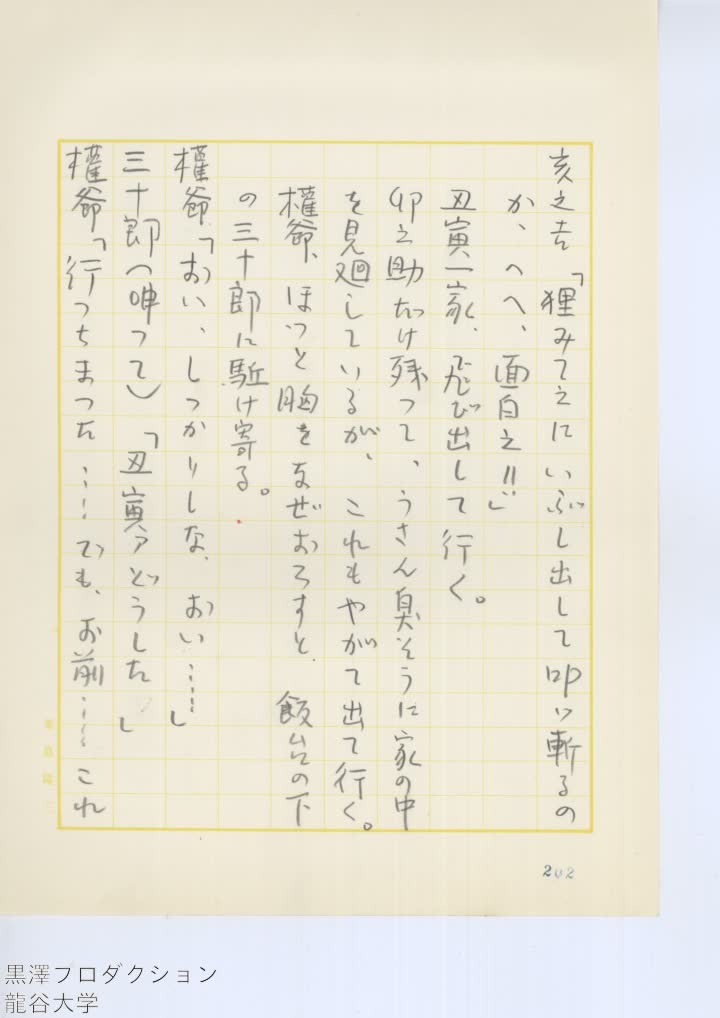 亥之吉「狸みてえにいぶし出して叩ッ斬るの
か、へへ、面白え!!」
丑寅一家、飛び出して行く。
卯之助だけ残って、うさん臭そうに家の中
を見廻しているが、これもやがて出て行く。
權爺、ほっと胸をなぜおろすと、飯台の下
の三十郎に駈け寄る。
權爺「おい、しっかりしな、おい……」
三十郎（呻って）「丑寅ァどうした」
權爺「行っちまった……でも、お前……これ
202
黒澤プロダクション
龍谷大学